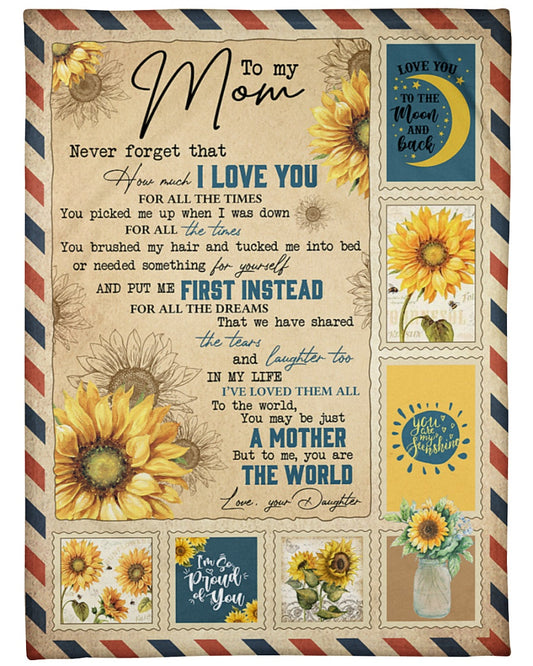 To my
Mom
Never forget that
How much I LOVE YOU
FOR ALL THE TIMES
You picked me up when I was down
FOR ALL the times
You brushed my hair and tucked me into bed
or needed something for yourself
AND PUT ME FIRST INSTEAD
FOR ALL THE DREAMS
That we have shared
the tears
and laughter too
IN MY LIFE
I'VE LOVED THEM ALL
To the world,
You may be just
A MOTHER
But to me, you are
THE WORLD
Love, your Daughter
LOVE YOU
TO THE
Moon
AND
back
You
are
my
Sunshine
I'm So
Proud
of You